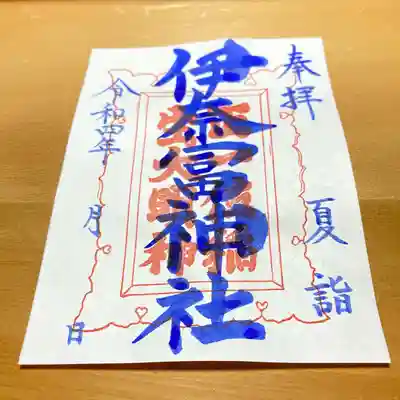 奉拝
夏詣
伊奈冨神社
令和四年 月 日